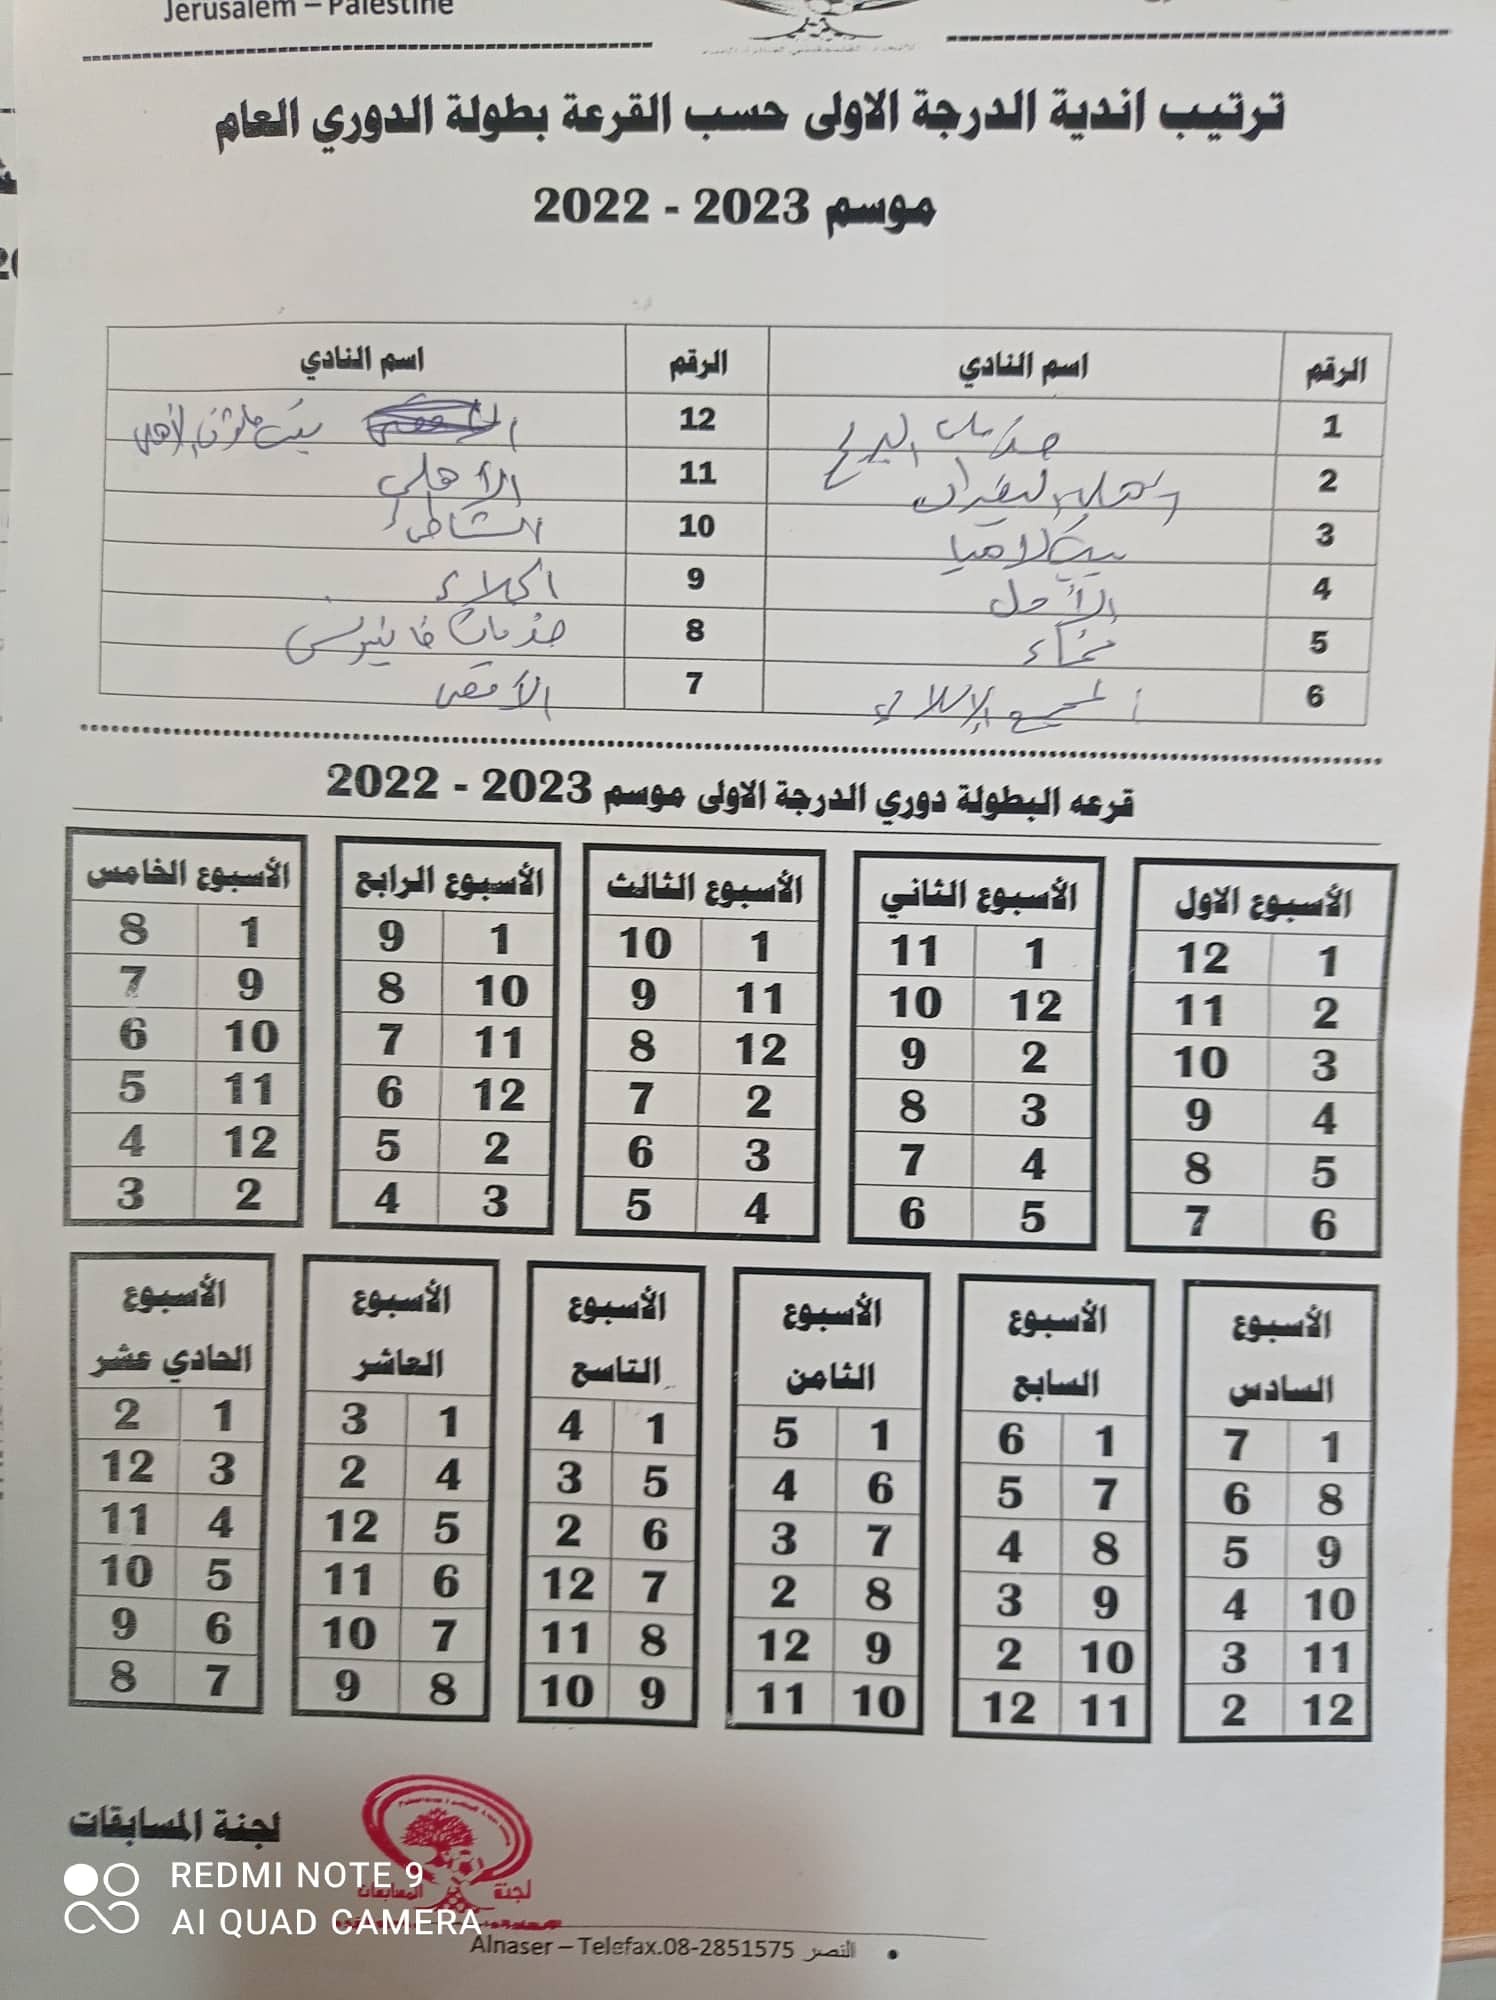 Jerusalem – Palestine
ترتيب اندية الدرجة الاولى حسب القرعة بطولة الدوري العام
موسم 2023 - 2022
الرقم اسم النادي الرقم اسم النادي
1 خدمات البريج 12 بيت حانون الأهلي
2 النفراق 11 الأهلي
3 بيت لاهيا 10 الشاطئ
4 الأمل 9 الجلاء
5 نماء 8 خدمات خانيونس
6 المجمع الإسلامي 7 الأقصى
قرعه البطولة دوري الدرجة الاولى موسم 2023 - 2022
الأسبوع الاول
1 12
2 11
3 10
4 9
5 8
6 7
الأسبوع الثاني
1 11
12 10
2 9
3 8
4 7
5 6
الأسبوع الثالث
1 10
11 9
12 8
2 7
3 6
4 5
الأسبوع الرابع
1 9
10 8
11 7
12 6
2 5
3 4
الأسبوع الخامس
1 8
9 7
10 6
11 5
12 4
2 3
الأسبوع
السادس
1 7
8 6
9 5
10 4
11 3
12 2
الأسبوع
السابع
1 6
7 5
8 4
9 3
10 2
11 12
الأسبوع
الثامن
1 5
6 4
7 3
8 2
9 12
10 11
الأسبوع
التاسع
1 4
5 3
6 2
7 12
8 11
9 10
الأسبوع
العاشر
1 3
4 2
5 12
6 11
7 10
8 9
الأسبوع
الحادي عشر
1 2
3 12
4 11
5 10
6 9
7 8
لجنة المسابقات
لجنة المسابقات
REDMI NOTE 9
AI QUAD CAMERA
Alnaser – Telefax.08-2851575 النصر •